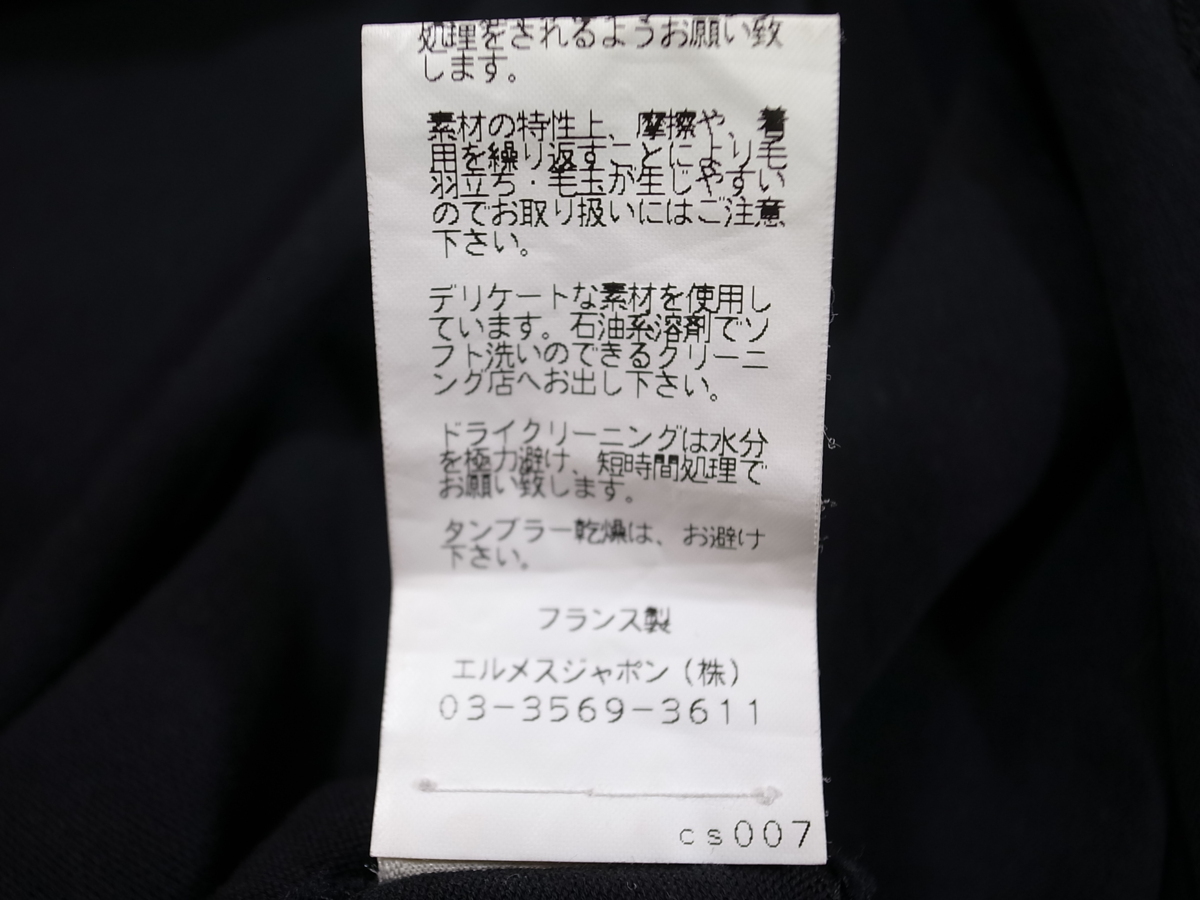 処理をされるようお願い致
します。
素材の特性上、摩擦や、着
用を繰り返すことにより毛
羽立ち・毛玉が生じやすい
のでお取り扱いにはご注意
下さい。
デリケートな素材を使用し
ています。石油系溶剤でソ
フト洗いのできるクリーニ
ング店へお出し下さい。
ドライクリーニングは水分
を極力避け、短時間処理で
お願い致します。
タンブラー乾燥は、お避け
下さい。
フランス製
エルメスジャポン（株）
03-3569-3611
cs007